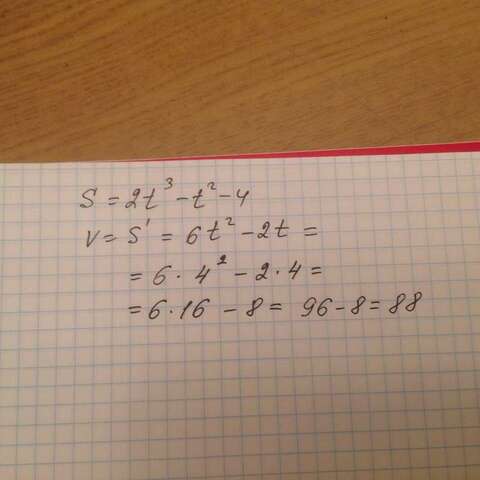 S = 2t³ - t² - 4
V = S' = 6t² - 2t =
= 6 · 4² - 2 · 4 =
= 6 · 16 - 8 = 96 - 8 = 88